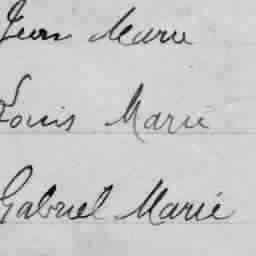 Jean Marie
Louis Marie
Gabriel Marie